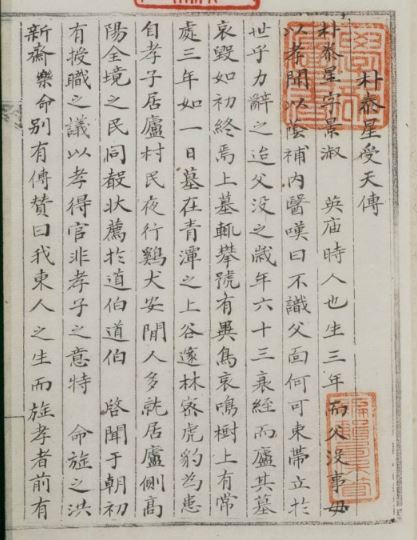 朴泰星受天傳
朴泰星字景淑 英庙時人也生三年而父没事母
以孝聞以蔭補内醫嘆曰不識父面何可束帶立於
世乎力辭之迨父没之歳年六十三衰絰而廬其墓
哀毁如初終焉上墓輒攀號有異鳥哀鳴樹上有常
處三年如一日墓在青潭之上谷邃林密虎豹為患
自孝子居廬村民夜行鷄犬安閒人多就居廬側高
陽全境之民同辭状薦於道伯道伯 啓聞于朝初
有授職之議以孝得官非孝子之意特 命旌之洪
新齋樂命别有傳賛曰我東人之生而旌孝者前有